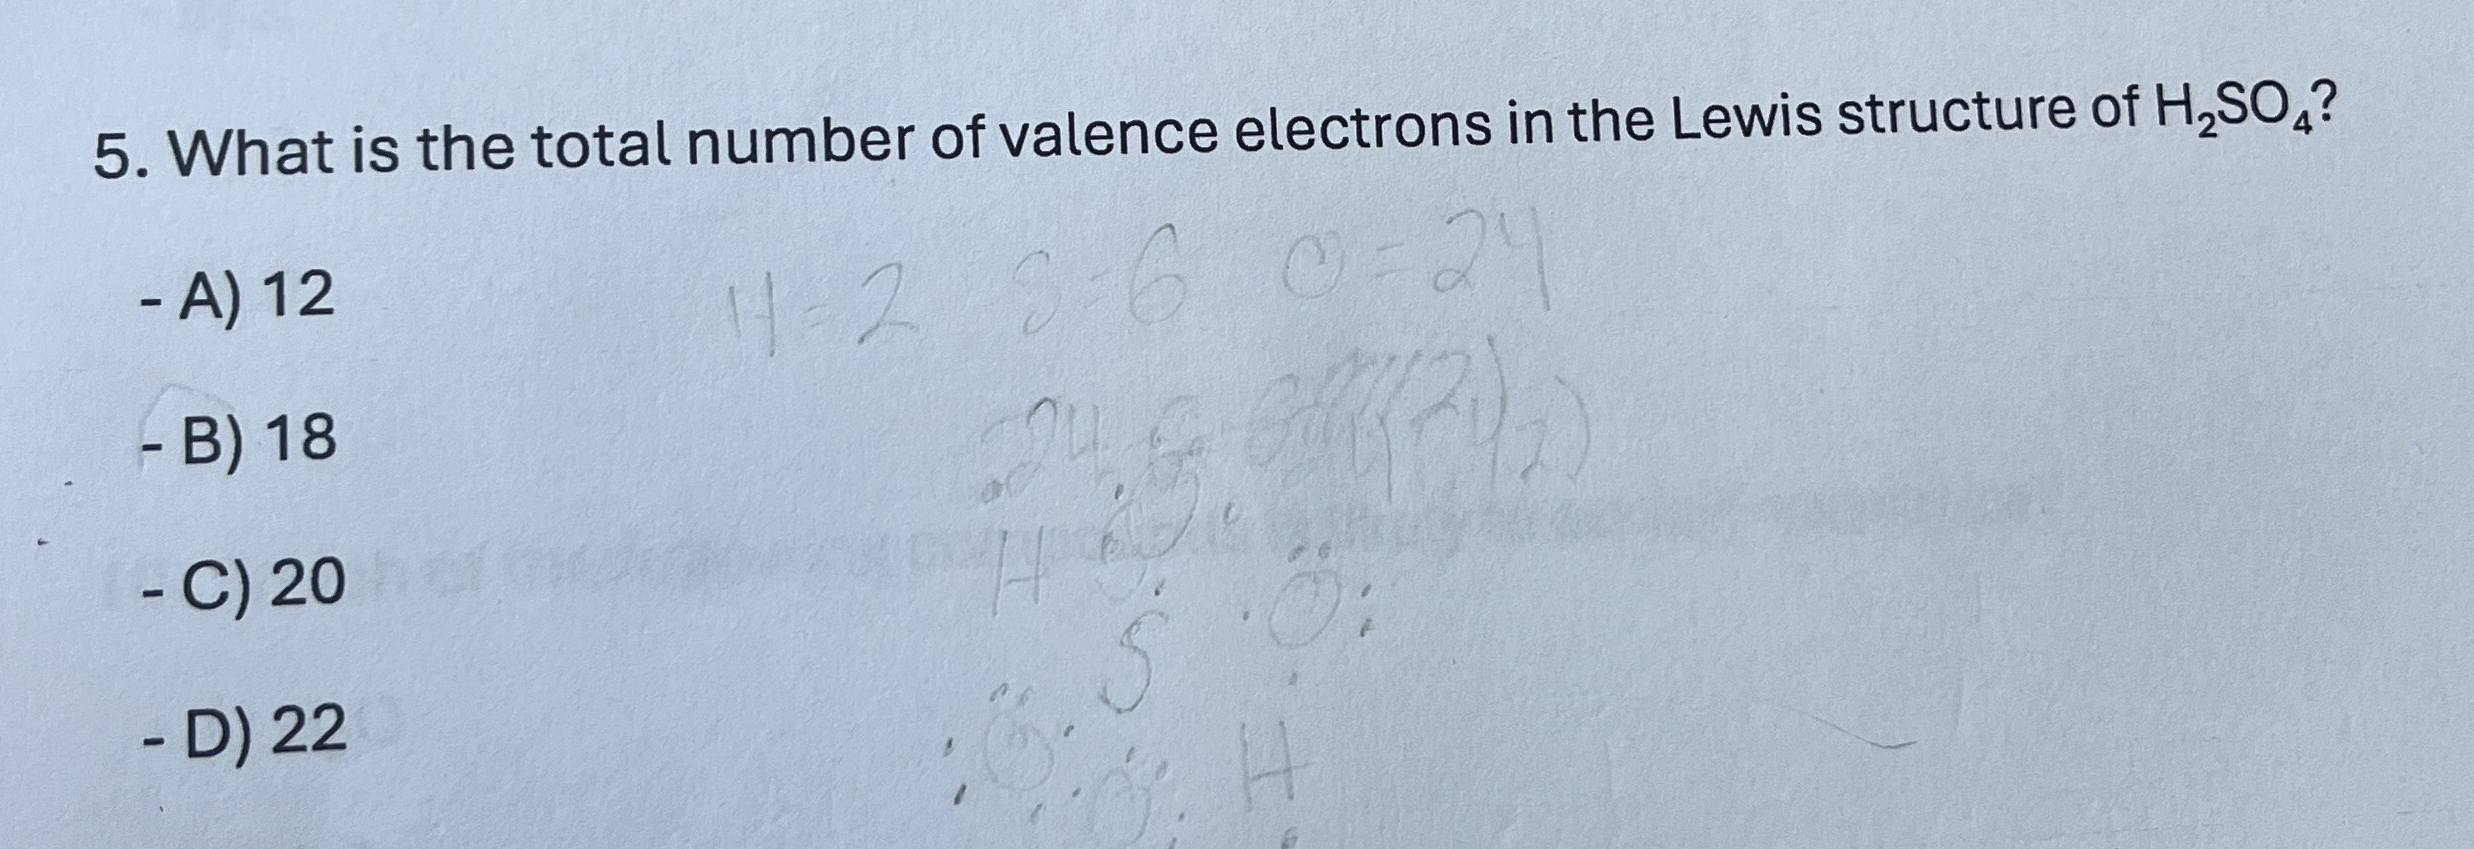 5. What is the total number of valence electrons in the Lewis structure of H₂SO₄?
- A) 12
H = 2 S - 6 O = 24
- B) 18
24
- C) 20
H O O
S
- D) 22
O O H